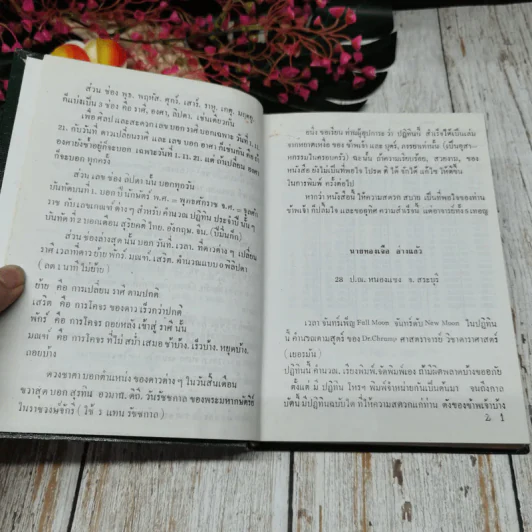 ส่วน ช่อง พุธ, พฤหัส, ศุกร์, เสาร์, ราหู, เกตุ, มฤตยู,
ก็แบ่งเป็น 3 ช่อง คือ ราศี, องศา, ลิปดา, เช่นเดียวกัน
เพื่อ ศิลป และสะดวก เลข บอก ราศี บอกเฉพาะ วันที่ 1, 11,
21, กับวันที่ ดาวเปลี่ยนราศี และ เลข บอก องศา ก็เช่นกัน คือ ถ้า
องศายังซ้ำอยู่ก็จะบอก เฉพาะวันที่ 1, 11, 21, แต่ ถ้าเปลี่ยนองศา
ก็จะบอก ทุกครั้ง
ส่วน เลข ช่อง ลิปดา นั้น บอกทุกวัน
บันทัดบนที่ 1, บอก ปี นักษัตร์ พ.ศ. ค.ศ.
ราช กับ เลขเกณฑ์ ต่าง ๆ สำหรับ คำนวณ ปฏิทิน ประจำปี นั้น ๆ
บันทัด ที่ 2 บอกเดือน สุริยคติ ไทย, อังกฤษ, จีน,
ส่วน ช่อง ล่างสุด นั้น บอก วันที่, เวลา, ที่ดาวต่าง ๆ เปลี่ยน
ราศี เวลาที่ดาว ย้าย พักร์, มณฑ์, เสริต,
(ลด 1 นาที ไม่ย้าย)
ย้าย คือ การเปลี่ยน ราศี ตามปกติ
เสริต คือ การโคจร ของดาว เร็วกว่าปกติ
พักร์ คือ การโคจร ถอยหลัง เข้าสู่ ราศี นั้น
มณฑ์ คือ การโคจร ที่ไม่ สม่ำ เสมอ ช้าบ้าง, เร็วบ้าง, หยุดบ้าง,
ถอยบ้าง
ดวงชาตา บอก ตำแหน่ง ของดาวต่าง ๆ ในวันสิ้นเดือน
ขวาสุด บอก สุรทิน อวมาน, ดิถี, วันรัชกาล ของพระมหากษัตริย์
ในราชวงษ์จักรี (ใช้ ร แทน รัชชกาล)
อนึ่ง ขอเรียน ท่านผู้อุปการะ ว่า ปฏิทินนี้ สำเร็จได้เป็นเล่ม
จากหยาดเหงื่อ ของ ข้าพเจ้า และ บุตร์, ภรรยาเท่านั้น (เป็นอุตสา-
หกรรมในครอบครัว) ฉะนั้น ถ้าความเรียบร้อย, สวยงาม, ของ
หนังสือ ยังไม่เป็นที่พอใจ โปรด ติ ให้ จักได้ แก้ไข ให้ดีขึ้น
ในการพิมพ์ ครั้งต่อไป
หากว่า หนังสือนี้ ให้ความ สดวก สบาย เป็นที่พอใจ ของท่าน
ข้าพเจ้า ก็ปลื้มใจ และขออุทิศ ความสำเร็จนี้ แด่อาจารย์ทรัง เหอญ
นายทองเจือ อ่างแก้ว
28 ป.ณ. หนองแซง จ. สระบุรี
เวลา จันทร์เพ็ญ Full Moon จันทร์ดับ New Moon ในปฏิทิน
นี้ คำนวณตามสูตร์ ของ Dr.Cheung ศาสตราจารย์ วิชาดาราศาสตร์
(เยอรมัน)
ปฏิทินนี้ คำนวณ, เรียงพิมพ์, จัดพิมพ์เอง ถ้ามีผิดพลาดบ้างขออภัย
ตั้งแต่ มี ปฏิทิน โหรฯ พิมพ์จำหน่ายกันเป็นต้นมา จนถึงกาล
บัดนี้ มี ปฏิทินฉบับใด ที่ให้ความสดวกแก่ท่าน ดั่งของข้าพเจ้าบ้าง
2 1